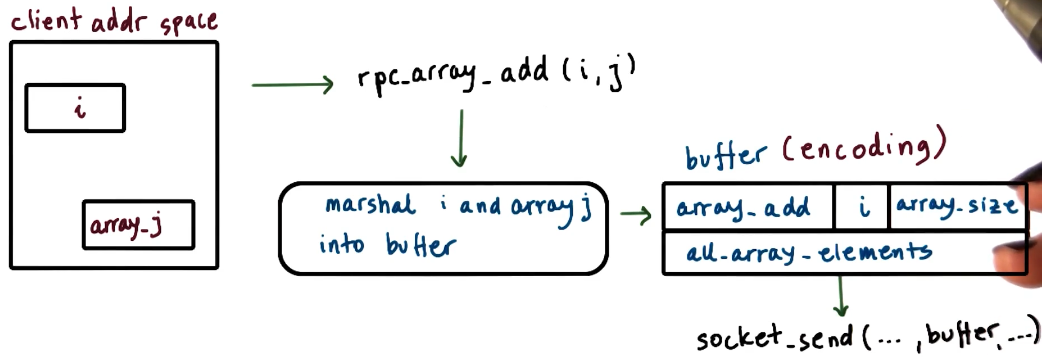 client addr space
i
array_j
rpc_array_add (i, j)
marshal i and array j
into buffer
buffer (encoding)
array_add i array_size
all_array_elements
socket_send (... , buffer, ...)